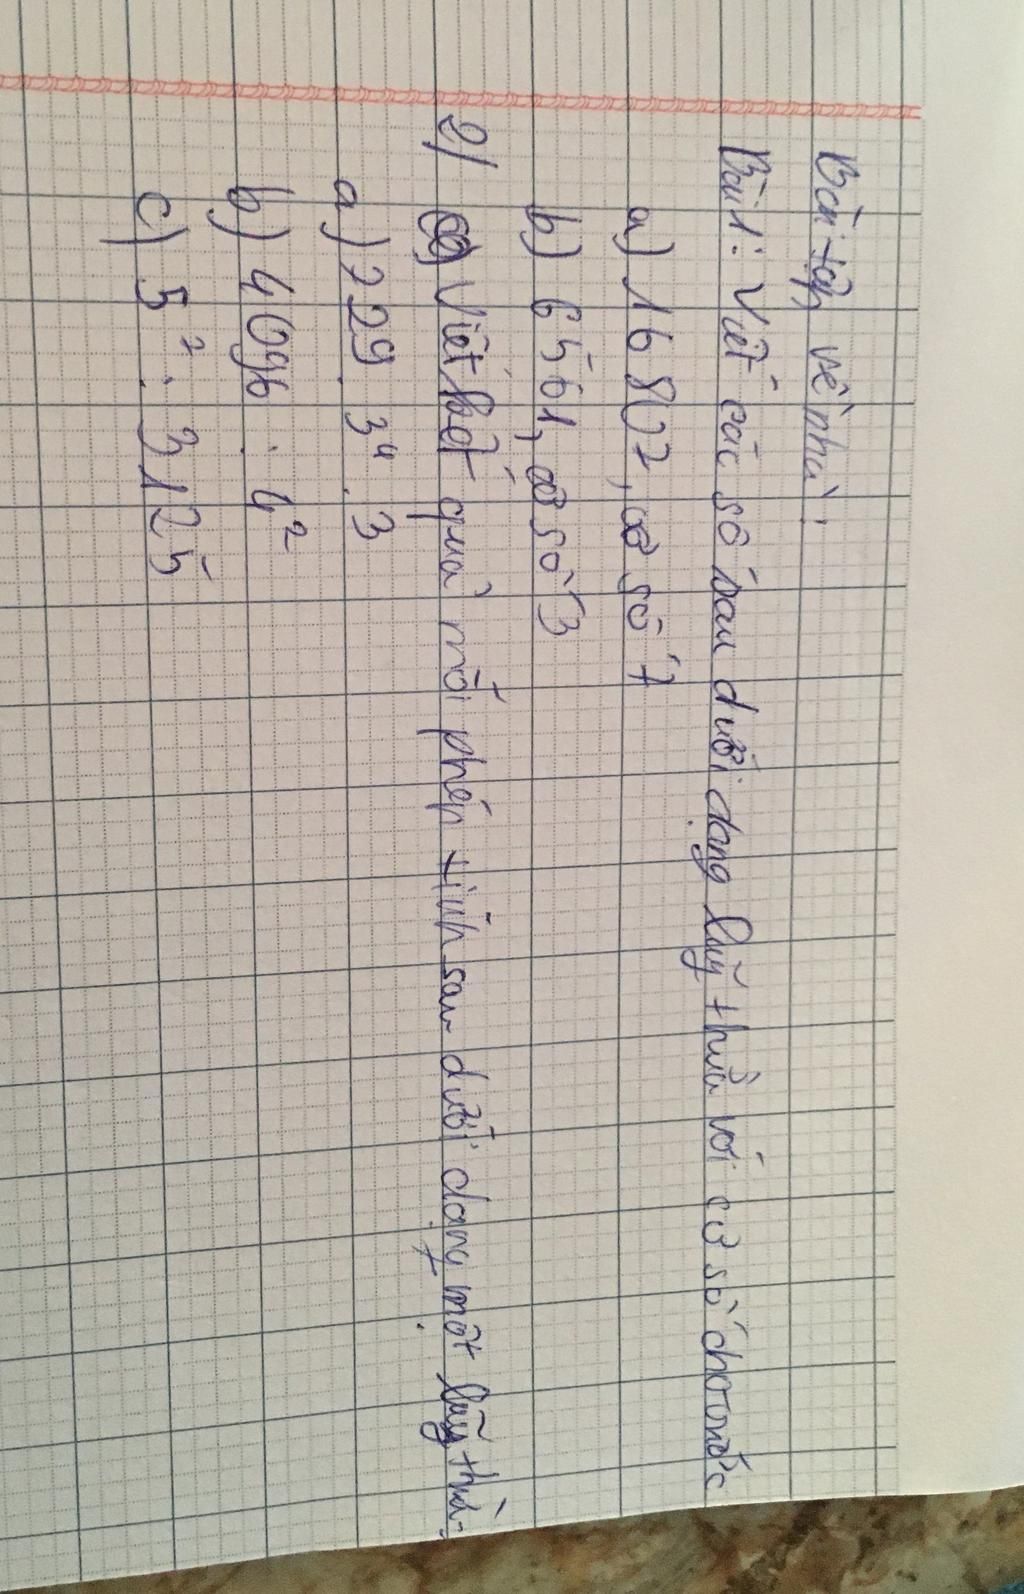 Bài tập về nhà:
Bài 1: Viết các số sau dưới dạng luỹ thừa với cơ số cho trước
a) 16 807, cơ số 7
b) 6561, cơ số 3
2) Viết kết quả mỗi phép tính sau dưới dạng một luỹ thừa:
a) 729 . 3⁴ . 3
b) 4096 : 4²
c) 5² . 3125